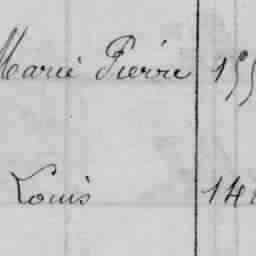 Marie Pierre 155
Louis 14